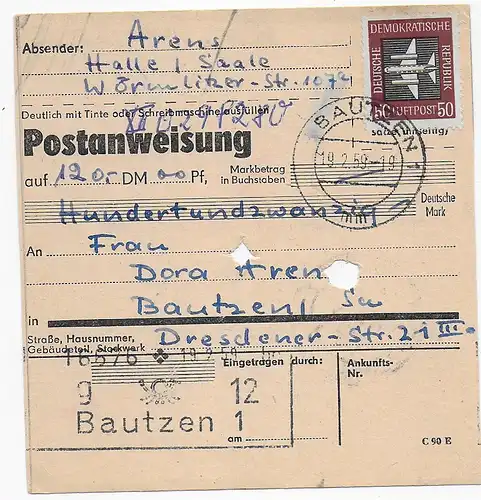 Absender: Arens
Halle / Saale
Wörmlitzer-Str. 107a
DEMOKRATISCHE
DEUTSCHE
REPUBLIK
50 LUFTPOST 50
Deutlich mit Tinte oder Schreibmaschine ausfüllen
satzeitanteilig)
BAUTZEN 1
19.2.59.-18
Postanweisung
auf 120.- DM 00 Pf, Markbetrag in Buchstaben
Hundertundzwanzig Deutsche Mark
An Frau
Dora Aren
in Bautzen / Sa
Straße, Hausnummer, Gebäudeteil, Stockwerk Dresdener-Str. 21 III
19.2.59
Eingetragen durch:
Ankunfts-Nr.
9 12
Bautzen 1
am
C 90 E